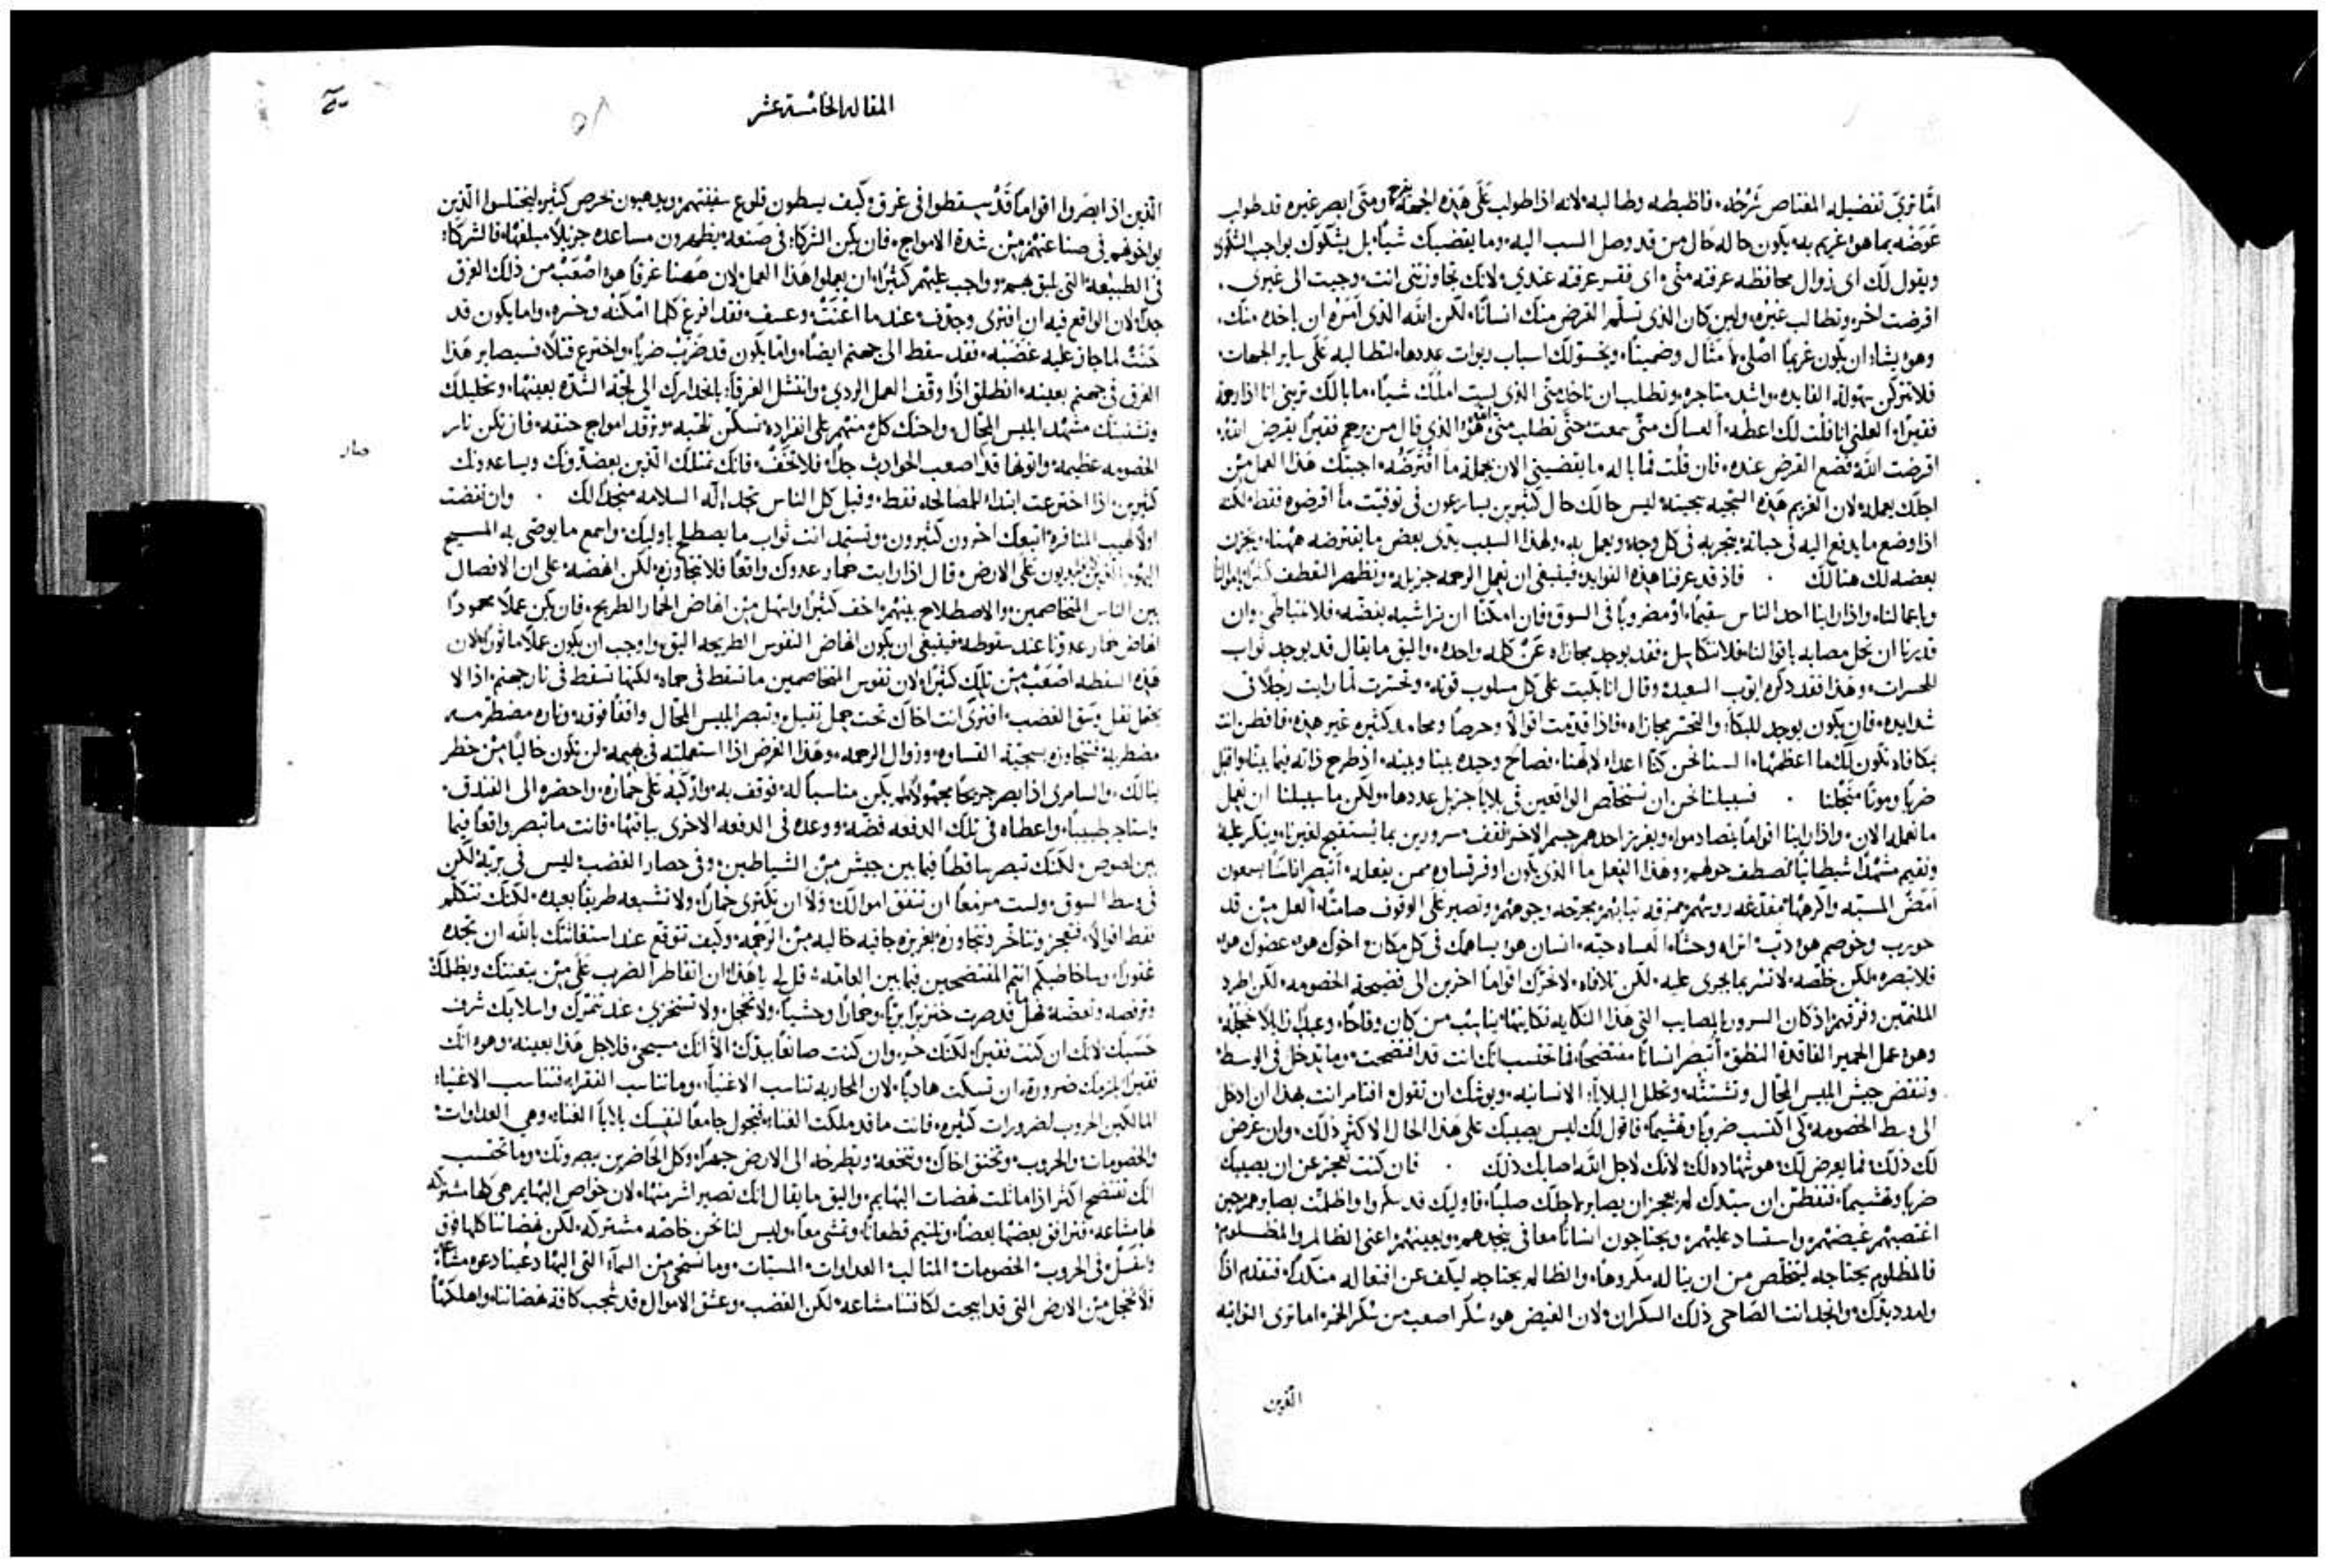 امّا ترى تفضيله المغتاص شرحُه، فاظبطه وطالبه، لانه اذا طولب على هذه الجهة يفرح ومتى ابصر غيره قد طولب
عوضه بما هو اغريم به، يكون حاله حال من قد وصل السب اليه، وما يقضيك شيًا، بل يشكوك بواجب الشكوى
ويقول لك اى زوال محافظه عرفته منّي، اى فقر عرفته عندي، لانك تجاوزتني انت، وجيت الى غيرى.
اقرضت اخر، وتطالب غيره، ولين كان الذى تسلّم القرض منك انسانًا، لكن الله الذى امره ان ياخده منك،
وهو يشاء ان يكون غريمًا اصلي لا مثال وضمينًا، ويخولك اسباب ربوات عددها، لتطالبه على ساير الجهات
فلا تتركن سهولة الفايده، واشد متاجره، وتطلب ان تاخد منّي الذى لست املك شيًا، ما بالك تريني انا اذا رحمة
فقيرًا، العلني انا قلت لك اعطه، ألعساك منّي سمعت حتّى تطلب منّي الله هو الذى قال من رحم فقيرًا يقرض الله،
اقرضت الله فضع القرض عنده، فان قلت فما باله ما يقضيني الان بجملة ما اقترضه، اجبتك هذا العمل من
اجلك يعمله، لان الغريم هذه السجيه سجيته، ليس حالك حال كثيرين يسارعون فى توفيت ما اقرضوه فقط، لكنه
اذا وضع ما يدفع اليه فى حياته، يتجر به فى كل وجه، ويعمل به، ولهذا السبب يئدى بعض ما يقترضه ههنا، ويخزن
بعضه لك هنالك . فاذ قد عرفنا هذه الفوايد، فينبغى ان نعمل الرحمه جزيله، ونظهر التعطف كثيرًا باموالنا
وباعمالنا، واذا راينا احد الناس سقيمًا، او مضروبًا فى السوق، فان امكننا ان نراشيه بفضه، فلا نتباطى، وان
قدرنا ان نحل مصابه باقوالنا، فلا نتكاسل، فقد يوجد مجازاه عن كلمه واحده، واليق ما يقال قد يوجد ثواب
للحسرات، وهذا فقد ذكره ايوب السعيد، وقال انا بكيت على كل مسلوب قوته، وتحسرت لما رايت رجلًا فى
شدايده، فان يكون يوجد للبكاء والتحسر مجازاه، فاذا قدمت اقوالًا وحرصًا ومحاماه كثيره غير هذه، فافطن انت
بمكافاه تكون لك ما اعظمها، السنا نحن كنّا اعداء لالهنا، فصالح وحيده بينا وبينه، اذ طرح ذاته فيما بيننا، واقبل
ضربًا وموتًا من اجلنا . فسبيلنا نحن ان نستخلص الواقعين فى بلايا جزيل عددها، ولكن ما سبيلنا ان نعمل
ما نعمله الان، واذا راينا اقوامًا يتصادموا، ويغرز احدهم جسم الاخر، نقف مسرورين بما نستقبح لغيرنا، وينكر عليه
ونقيم مشهدًا شيطانيًا نصطف حولهم، وهذا الفعل ما الذى يكون اوفر قساوه ممن يفعله، أتبصر اناسًا يسمعون
امضّ المسبّه واكرهها
فلا تبصره، لكن خلّصه، لا تسر بما يجرى عليه، لكن تلافاه، لا تحرّك اقوامًا اخرين الى فضيحة الخصومه، لكن اطرد
الملتمين وفرقهم
وهو عمل الحمير الفاقدة النطق، أتبصر انسانًا مفتضحًا، فما تحتسب انك انت قد افتضحت، وما تدخل فى الوسط،
وتنفض جيش ابليس المحّال وتشتته، وتحلل البلايا، الانسانيه، ويوشك ان تقول، افتامر انت بهذا ان ادخل
الى وسط الخصومه، كى اكتسب ضروبًا وتهشيمًا، فاقول لك ليس يصيبك على هذا الحال الاكثر ذلك، وان عرض
لك ذلك، فما يعرض لك هو شهاده لك، لانك لاجل الله اصابك ذلك . فان كنت تعجز عن ان يصيبك
ضربًا وتهشيمًا، فتفطن ان سيدك لم يعجز ان يصابر لاجلك صلبًا، فاوليك قد سكروا واظلمت بصايرهم حين
اغتصبهم غيضهم، واستساد عليهم، ويحتاجون انسانًا معافى ينجدهم، وبعينهم اعنى الظالم والمظلوم،
فالمظلوم يحتاجه ليتخلّص من ان يناله مكروهًا، والظالم يحتاجه ليكف عن افعاله منكدًا، فتقدم اذًا
وامدد يدك، وانجد انت الصاحى ذلك السكران، لان الغيض هو سكر اصعب من سكر الخمر، اما ترى النواتيه
الذين
المقاله الخامسة عشر
الذين اذا ابصروا اقوامًا قد سقطوا فى غرق، وكيف يبسطون قلوع سفينتهم، ويدهبون بحرص كثير، ليختلسوا الذين
يواخوهم فى صناعتهم من شدة الامواج، فان يكن الشركاء فى صنعة، يظهرون مساعده جزيلًا مبلغها، فالشركاء
فى الطبيعة، التى يليق بهم، وواجب عليهم كثيرًا، ان يعملوا هذا العمل، لان ههنا غرقًا هو اصعب من ذلك الغرق
جدًا، لان الواقع فيه ان افترى وجدّف عند ما اعنت وعسف، فقد افرغ كلما امكنه وخسره، واما يكون قد
حنث لما جاز عليه غضبه، فقد سقط الى جهنم ايضًا، واما يكون قد ضرب ضربًا، واخترع قتلًا، فسيصابر هذا
الغرق فى جهنم بعينه، انطلق اذًا وقف العمل الردي، وانتشل الغرقا، بانحدارك الى لجّة الشدّه بعينها، وتحليلك
وتشتيتك مشهد ابليس المحال، واحنك كل منهم على انفراده، تسكن تلهّبه، وترقد امواج حنقه، فان تكن نار
الخصومه عظيمة، واتونها قد اصعب الحوادث جدًا، فلا تخف، فانك تمتلك الذين يعضدونك ويساعدونك
كثيرين، اذا اخترعت ابتداء المصالحه فقط، وقبل كل الناس تجد اله السلامه منجدًا لك . وان نفضت
اولًا لهيب المنافرة، اتبعك اخرون كثيرون، وتستمد انت ثواب ما يصطلح باوليك، واسمع ما يوصّى به المسيح
على الارض، قال اذا رايت حمار عدوك واقعًا، فلا تتجاوزه، لكن انهضه، على ان الافصال
بين الناس المتخاصمين، والاصطلاح بينهم، اخف كثيرًا واسهل من انهاض الحمار الطريح، فان يكن عملًا محمودًا
انهاض حمار عدونا عند سقوطه، فينبغى ان يكون انهاض النفوس الطريحه اليق واوجب ان يكون عملًا ماثورًا، لان
هذه السقطه اصعب من تلك كثيرًا، لان نفوس المتخاصمين ما تسقط فى حماه، لكنها تسقط فى نار جهنم، اذا لا
تحتمل ثقل وسق الغضب، افترى انت اخاك تحت حمل ثقيل، وتبصر ابليس المحّال واقفًا فوقه، وناره مضطرمه
مضطربة، فتتجاوزه بسجيّة القساوه، وزوال الرحمه، وهذا الغرض اذا استعملته فى بهيمه، لن تكون خاليًا من خطر
ينالك، والسامرى اذا ابصر جريحًا مجهولًا، لم يكن مناسبًا له، فوقف به، واركبه على حماره، واحضره الى الفندق،
واستاجر طبيبًا، واعطاه فى تلك الدفعه فضّه، ووعده فى الدفعه الاخرى بباقيها، فانت ما تبصر واقعًا فيما
بين لصوص، لكنك تبصر ساقطًا فيما بين جيش من الشياطين، وفى حصار الغضب، ليس فى بريّة، لكن
فى وسط السوق، ولست مزمعًا ان تنفق اموالك، ولا ان تكترى حمارًا، ولا تشيعه طريقًا بعيده، لكنك تتكلم
فقط اقوالًا، فتعجز وتتاخر وتجاوزه، بغريزه جافيه خاليه من الرحمه، وكيف تتوقع عند استغاثتك بالله ان تجده
غفورًا، وساخاطبكم انتم المفتضحين فيما بين العامه، قل لى يا هذا
خنزيرًا بريًا، وحمارًا وحشيًا، ولا تخجل، ولا تستخزى، عند
حسبك، لانك ان كنت فقيرًا، لكنك حر، وان كنت صانعًا بيدك، الا انك مسيحي، فلاجل هذا بعينه، وهو انك
فقيرًا يلزمك ضرورة، ان تسكت هاديًا، لان المحاربه تناسب الاغنياء، وما تناسب الفقراء، فتناسب الاغنياء
المالكين الحروب لضرورات كثيره، فانت ما قد ملكت الغناء، فتجول جامعًا لنفسك بلايا الغناء، وهي العداوات،
والخصومات، والحروب، وتخنق اخاك، وتطرحه الى الارض جهرًا، وكل الحاضرين يبصرونك، وما تحتسب
انك تفتضح اكثر اذا ماثلت نهضات البهايم، واليق ما يقال انك تصير اشر منها، لان خواص البهايم هي كلها مشتركه
لها مشاعه، فترافق بعضها بعضًا، وتمشى معًا، وليس لنا نحن خاصه مشتركه، لكن نهضاتنا كلها فوق
واسفل فى الحروب، الخصومات، المثالب، العداوات، المسبّات، وما نستحى من السماء التى اليها دعينا دعوه مشاعة
فلا نخجل من الارض التى قد ابيحت لكافتنا مشاعه، لكن الغضب، وعشق الاموال قد حجب كافة نهضاتنا واهلكنا